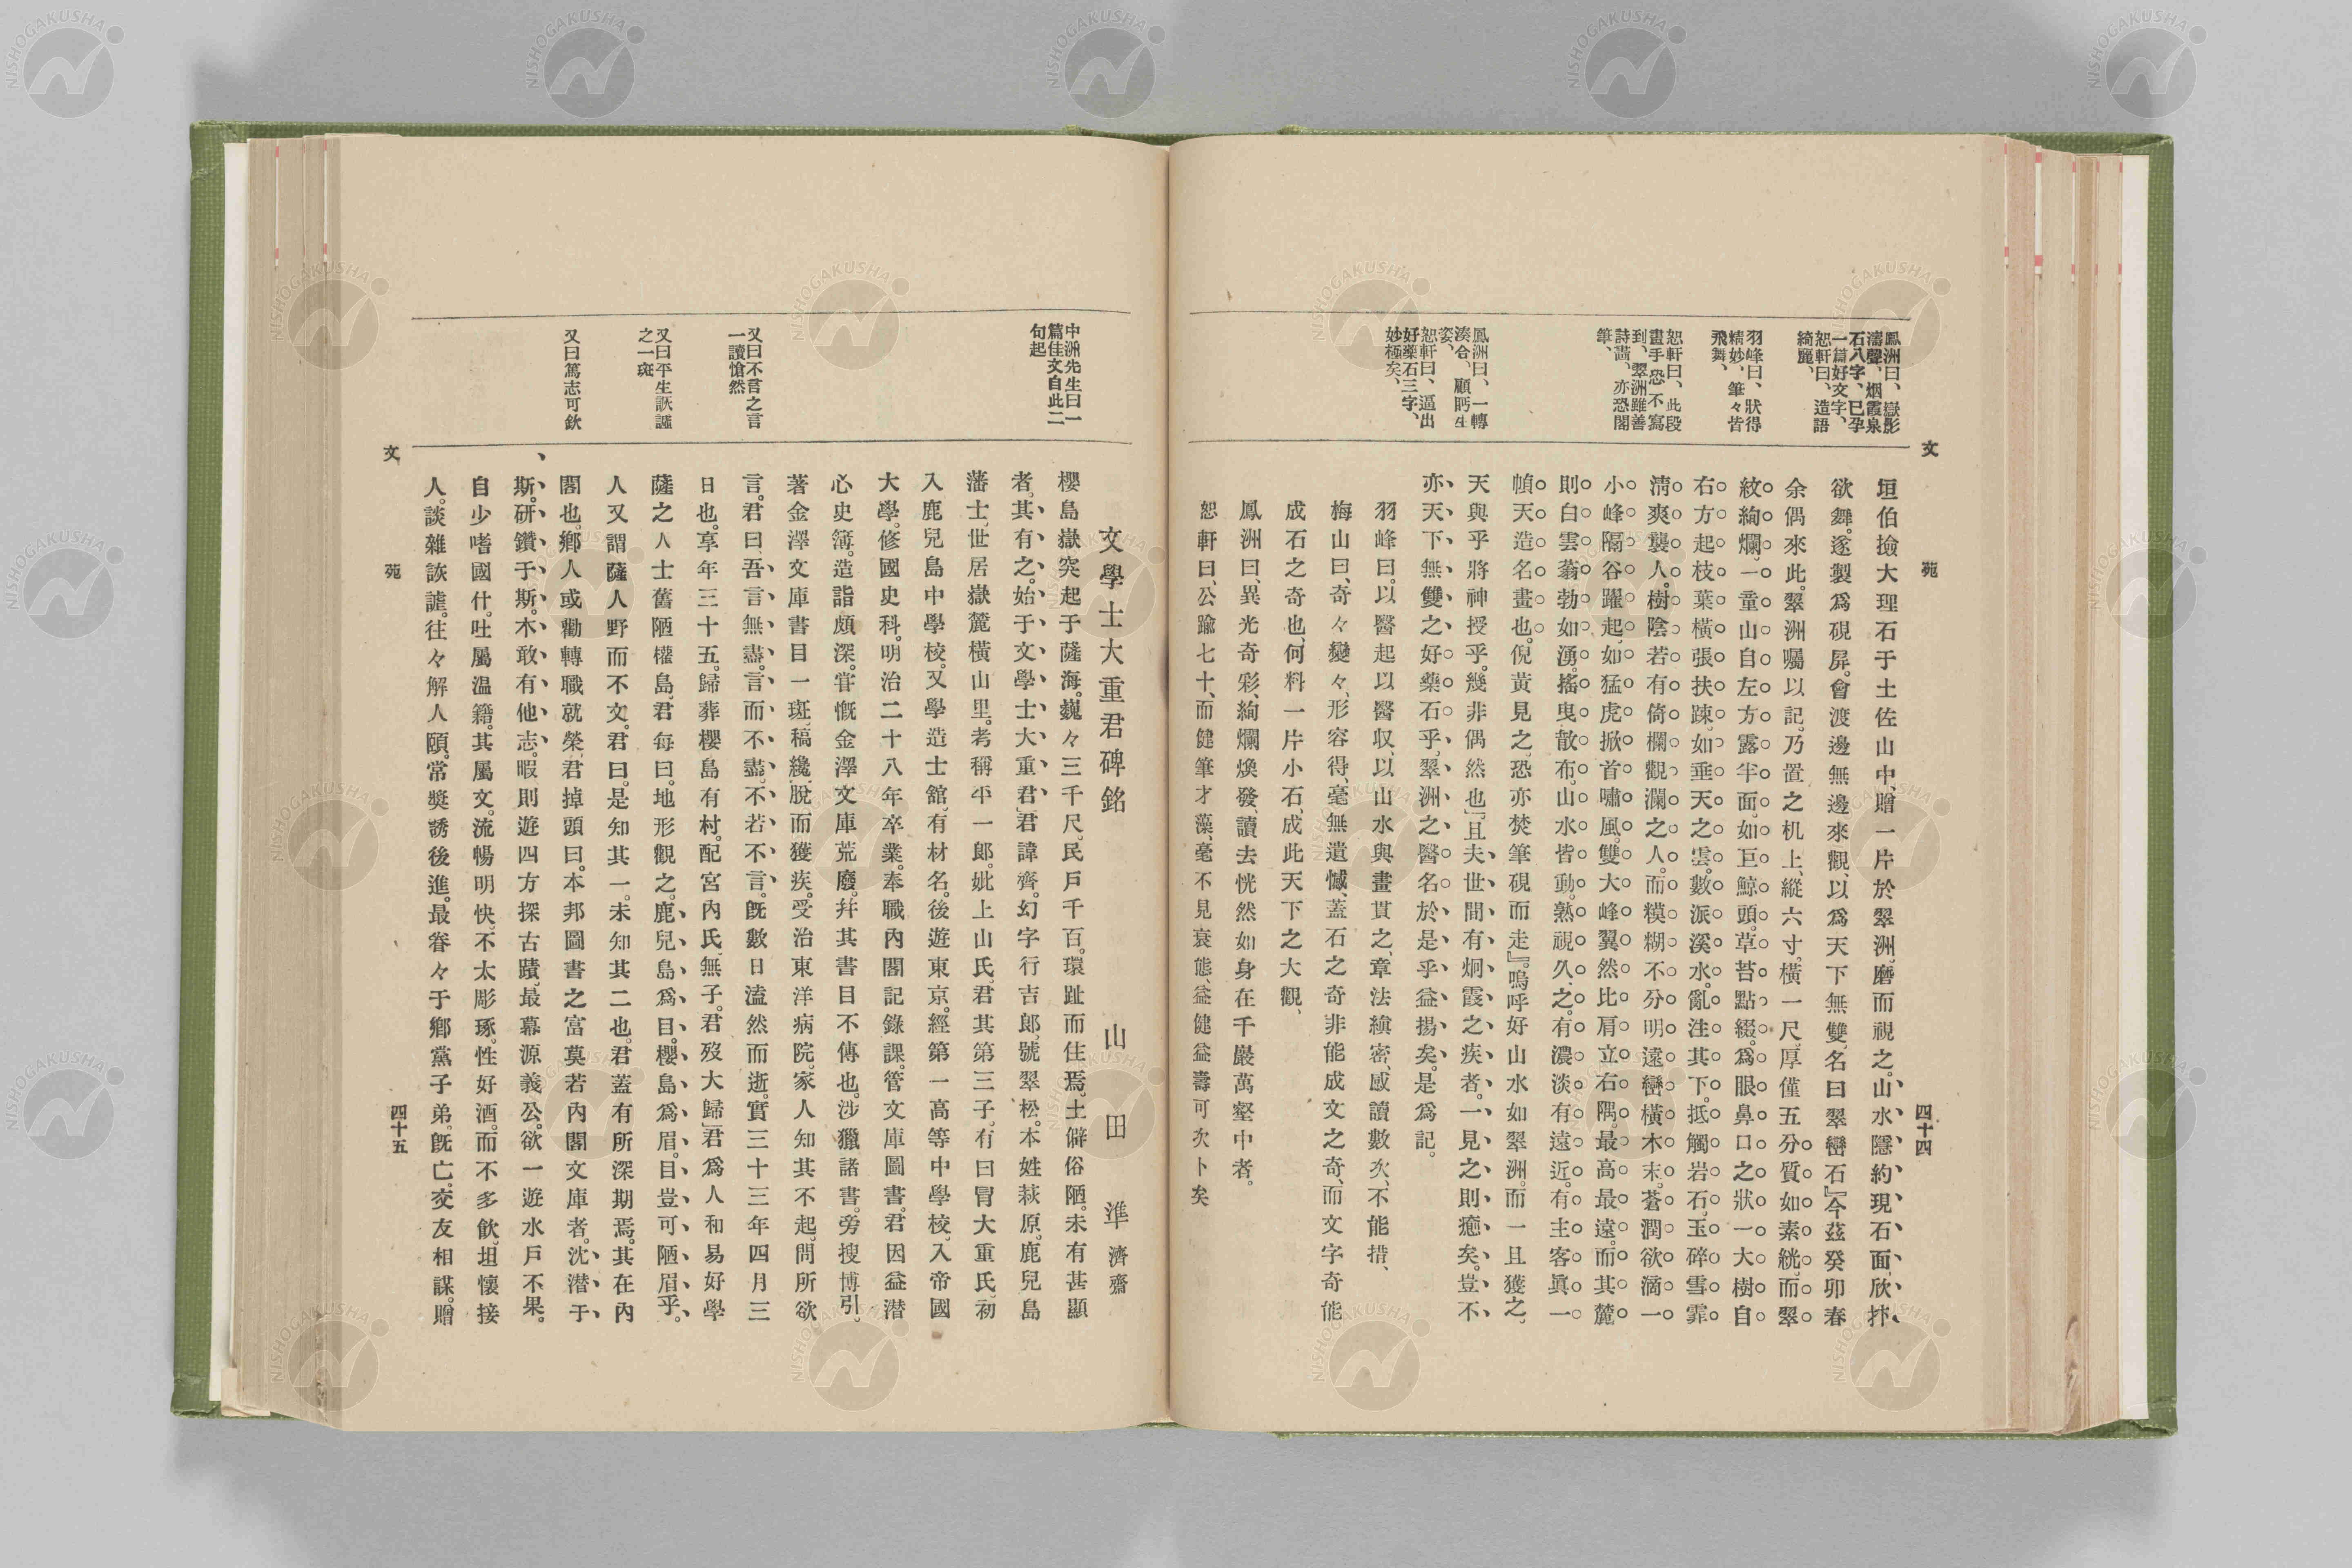 文苑
四十四
鳳洲曰、嶽影
濤聲、烟霞泉
石八字、已孕
一篇好文字、
恕軒曰、造語
綺麗、
羽峰曰、狀得
精妙、筆々皆
飛舞、
恕軒曰、此段
畫手恐不寫
到、翠洲雖善
詩畫、亦恐閣
筆、
鳳洲曰、一轉
湊合、顧眄生
姿、
恕軒曰、逼出
好藥石三字、
妙極矣、
垣伯撿大理石于土佐山中、贈一片於翠洲、磨而視之。山水隱約現石面、欣抃
欲舞。遂製爲硯屏。會渡邊無邊來觀、以爲天下無雙、名曰翠巒石』今茲癸卯春
余偶來此。翠洲囑以記。乃置之机上、縱六寸、橫一尺、厚僅五分。質如素絖、而翠
紋絢爛、一重山自左方露半面、如巨鯨頭。草苔點綴。爲眼鼻口之狀一大樹自
右方起枝葉橫張扶踈、如垂天之雲。數派溪水、亂注其下。抵觸岩石、玉碎雪霏
淸爽襲人。樹陰若有倚欄觀瀾之人。而糢糊不分明遠巒橫木末。蒼潤欲滴一
小峰隔谷躍起、如猛虎掀首嘯風。雙大峰翼然比肩立右隅。最高最遠。而其麓
則白雲蓊勃如湧。搖曳散布、山水皆動。熟視久之。有濃淡有遠近。有主客眞一
幀天造名畫也。倪黃見之、恐亦焚筆硯而走』。嗚呼好山水如翠洲。而一且獲之、
天與乎將神授乎。幾非偶然也」且夫世間有烱霞之疾者。一見之則癒矣。豈不
亦天下無雙之好藥石乎、翠洲之醫名於是乎益揚矣。是爲記。
羽峰曰。以醫起以醫収、以山水與畫貫之、章法縝密、感讀數次、不能措、
梅山曰、奇々變々、形容得、毫無遺憾、蓋石之奇非能成文之奇、而文字奇能
成石之奇也、何料一片小石、成此天下之大觀、
鳳洲曰、異光奇彩、絢爛煥發、讀去恍然如身在千巖萬壑中者。
恕軒曰、公踰七十、而健筆才藻、毫不見衰態、益健益壽可次卜矣
中洲先生曰一
篇佳文自此二
句起
又曰不言之言
一讀愴然
又曰平生詼謔
之一斑
又曰篤志可欽
文學士大重君碑銘　山田準 濟齋
櫻島嶽突起于薩海。巍々三千尺。民戶千百。環趾而住焉。土僻俗陋。未有甚顯
者。其有之。始于文學士大重君」君諱齊。幻字行吉郎、號翠松。本姓萩原。鹿兒島
藩士、世居嶽麓橫山里。考稱平一郎。妣上山氏、君其第三子。有曰冒大重氏、初
入鹿兒島中學校。又學造士舘、有材名。後遊東京。經第一高等中學校、入帝國
大學。修國史科。明治二十八年卒業。奉職內閣記錄課。管文庫圖書。君因益潜
心史籍。造詣頗深。甞慨金澤文庫荒廢。幷其書目不傳也。涉獵諸書。旁搜博引。
著金澤文庫書目一斑、稿纔、脫而獲疾。受治東洋病院。家人知其不起、問所欲
言。君曰、吾言無盡。言而不盡、不若不言。旣數日溘然而逝。實三十三年四月三
日也。享年三十五。歸葬櫻島有村。配宮內氏、無子。君歿大歸」君爲人和易好學
薩之人士舊陋權島、君每曰。地形觀之。鹿兒島爲目。櫻島爲眉。目豈可陋眉乎。
人又謂薩人野而不文。君曰。是知其一。未知其二也。君蓋有所深期焉。其在內
閣也。鄕人或勸轉職就榮、君掉頭曰。本邦圖書之富莫若內閣文庫者。沈潜于
斯。研鑽于斯。木敢有他志。暇則遊四方探古蹟、最慕源義公。欲一遊水戶不果。
自少嗜國什。吐屬温籍。其屬文。流暢明快、不太彫琢。性好酒。而不多飮。坦懷接
人。談雜詼謔。往々解人頤。常奬誘後進。最眷々于鄕黨子弟。旣亡。交友相謀。贈
文苑
四十五